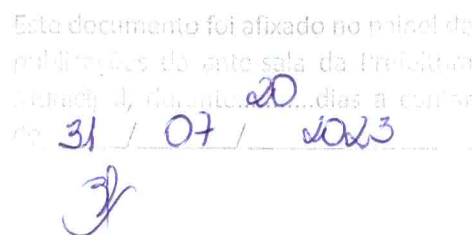 Este documento foi afixado no painel de
publicações do ante-sala da Prefeitura
Municipal, durante....20....dias a contar
de 31 / 07 / 2023